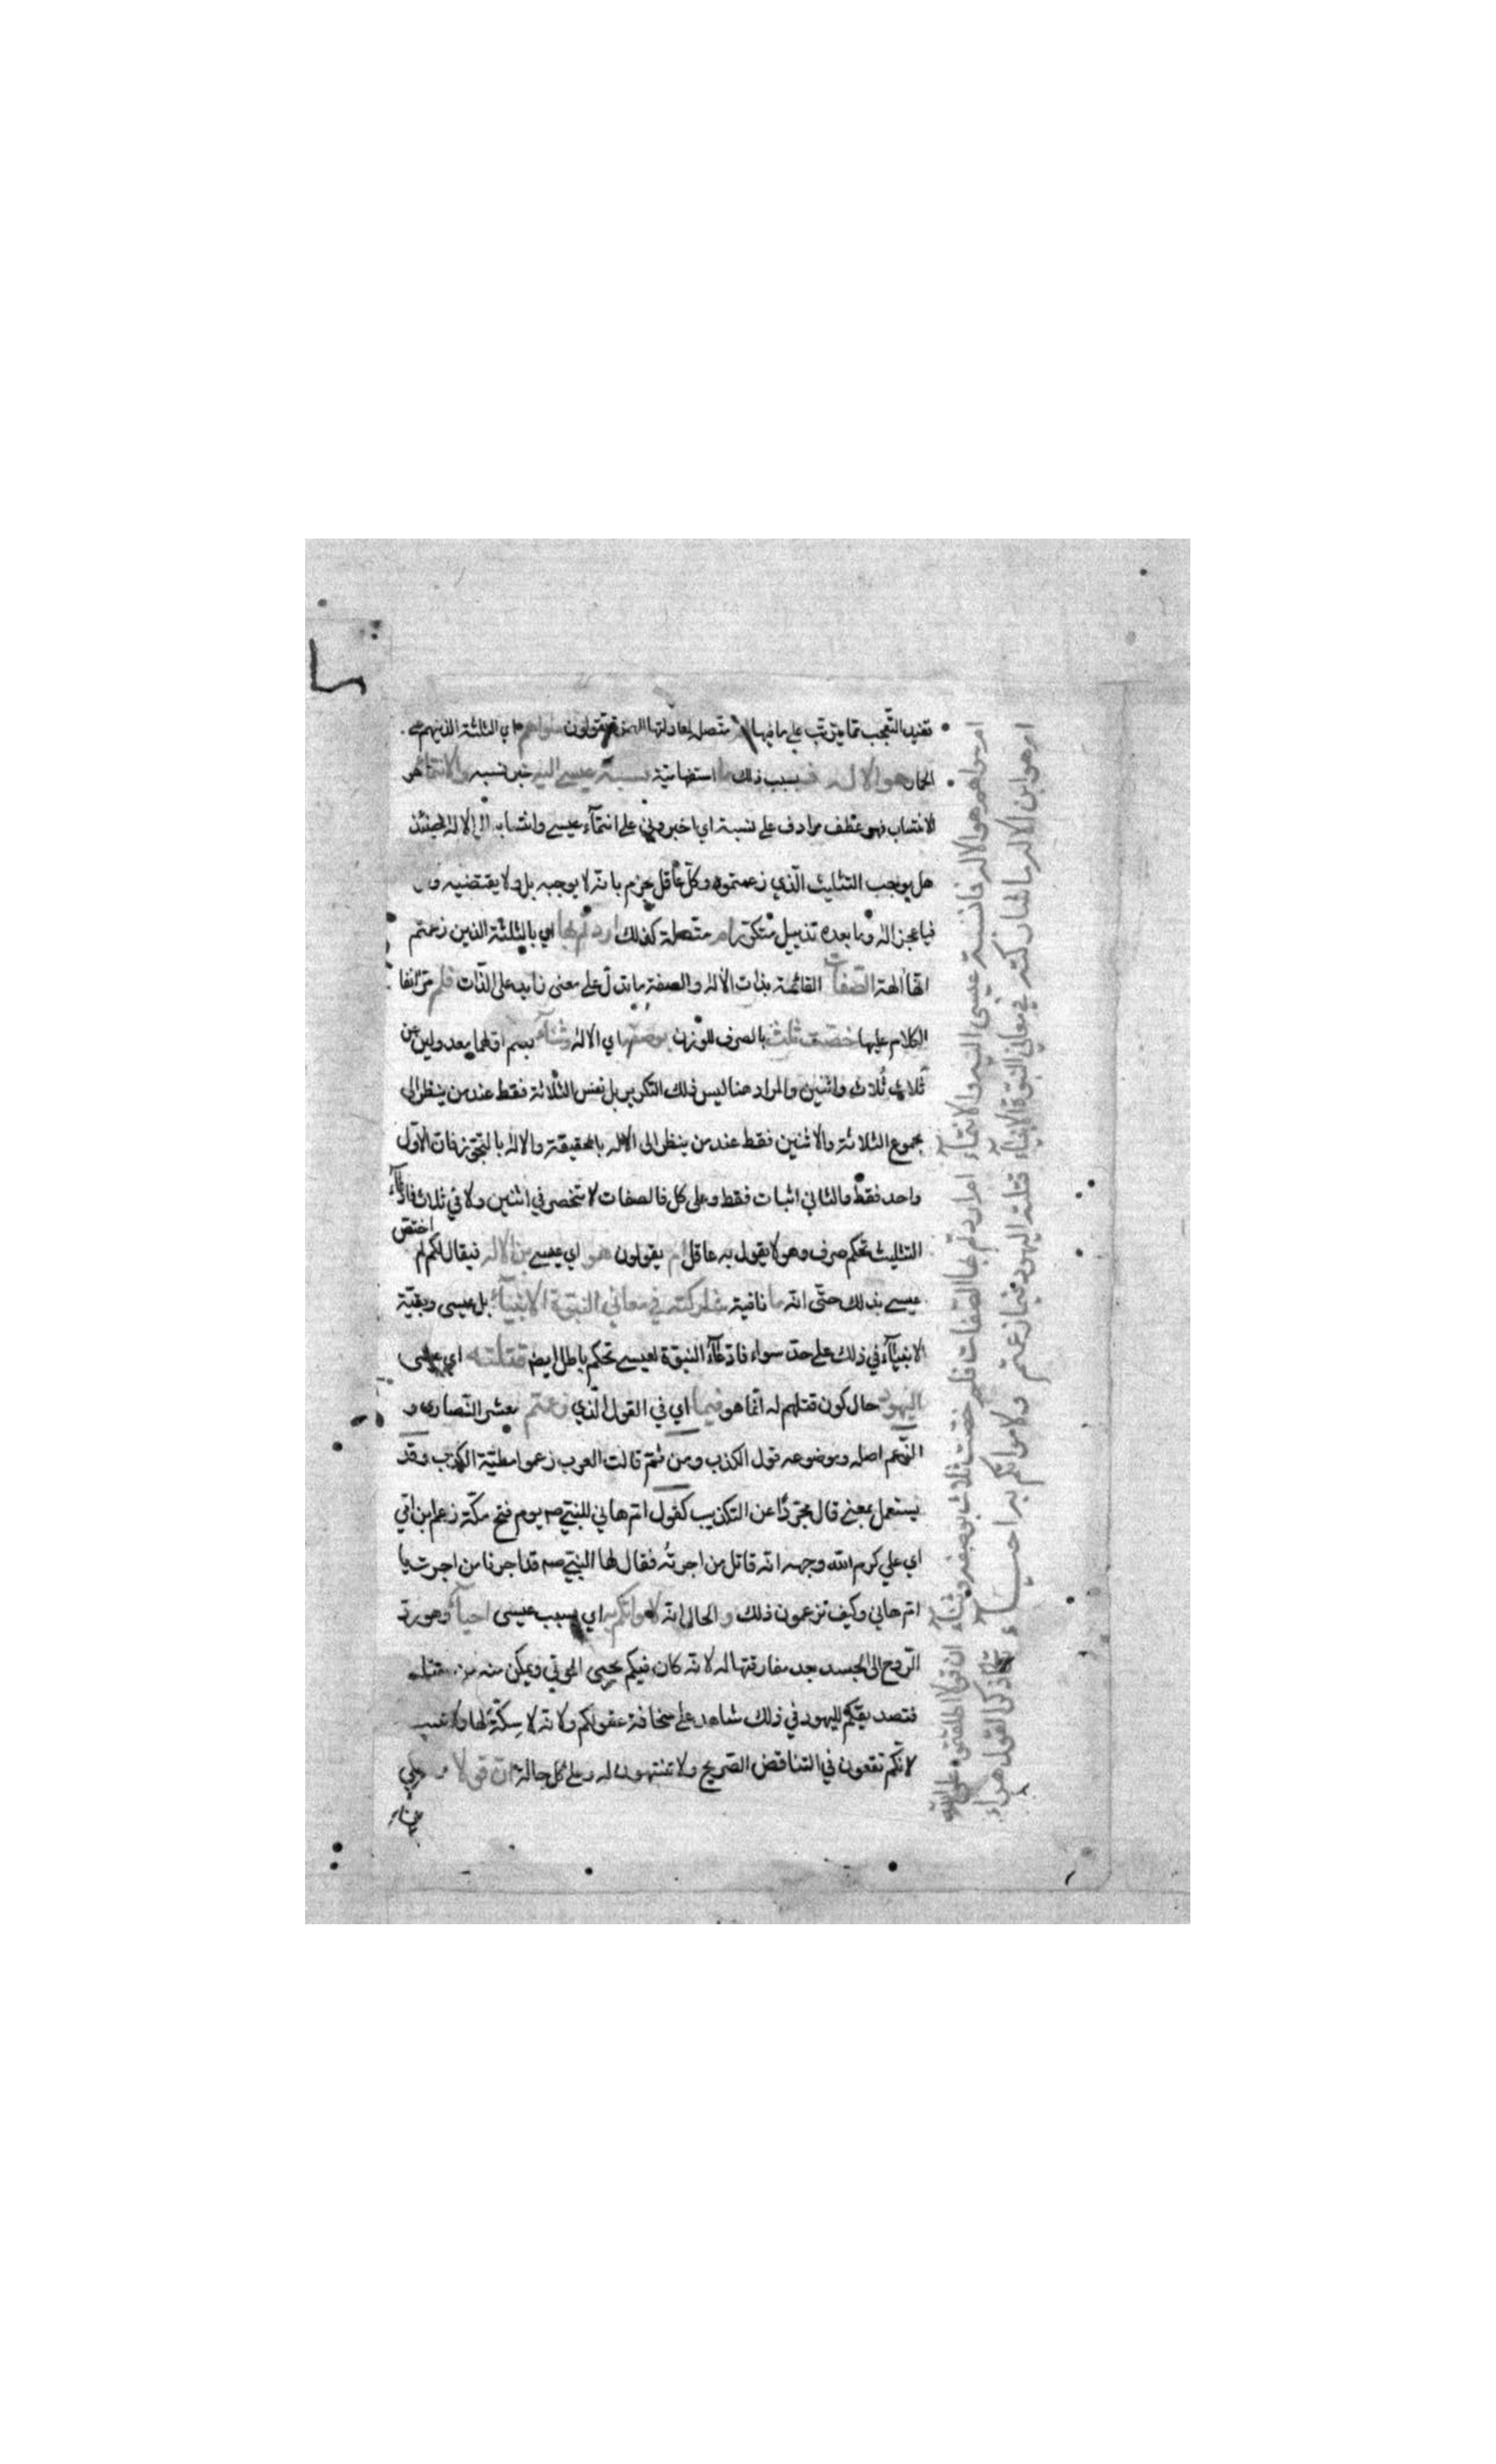 تفيد التعجب مما يترتب على ما فيها ام متصل لمعادلتها الهمزة تقولون سواهم اي الثلثة الذين هم على
الحمار هو الاله فـ بسبب ذلك ما استفهامية نسبة عيسى اليه خبر نسبه والانتماء هو
الانتساب فهو عطف مرادف على نسبة اي اخبروني على انتمآء عيسى وانتسابه الى الاله حينئذ
هل يوجب التثليث الّذي زعمتموه وكلّ عاقل يجزم بانّه لا يوجبه بل ولا يقتضيه و
فيا عجز اله وما بعده تذييل متكرر ام متصلة كذلك اردتم بها اي بالثلثة الذين زعمتم
انّها الهة الصّفات القائمة بذات الاله والصفة ما تدلّ على معنى زايد على الذّات فلم مرّ انفا
الكلام عليها خصّت ثلث بالصرف للوزن بوصفه اي الاله وثنآء بضم اولهما معدولين عن
ثلاث ثلاث واثنين والمراد هنا ليس ذلك التكرير بل نفس الثلاثة فقط عند من ينظر الى
مجموع الثلاثة والاثنين فقط عند من ينظر الى الاله بالحقيقة والاله بالتجوّز فان الاوّل
واحد فقط والثاني اثبات فقط وعلى كل فالصفات لا تنحصر في اثنين ولا في ثلاث فادّعآء
التثليث تحكم صرف وهو لا يقول به عاقل ام يقولون هو اي عيسى ابن الاله فيقال لكم لم اختصّ
عيسى بذلك حتّى انّه ما نافية شاركته في معاني النبوّة الانبيآء بل عيسى وبقيّة
الانبيآء في ذلك على حدّ سواء فادّعآء النبوّة لعيسى تحكم باطل ايض قتلته اي عيسى
اليهود حال كون قتلهم له انّما هو فيما اي في القول الّذي زعمتم معشر النّصارى و
الزّعم اصله وموضوعه قول الكذب ومن ثمّ قالت العرب زعموا مطيّة الكذب وقد
يستعمل بمعنى قال مجرّدًا عن التكذيب كقول ام هاني للنبي صم يوم فتح مكّة زعم ابن امّي
اي علي كرم الله وجهه انّه قاتل من اجرتُه فقال لها النبي صم قد اجرنا من اجرت يا
امّ هاني وكيف تزعمون ذلك و الحال انّه لامواتكم به اي بسبب عيسى احيآء وهو ردّ
الرّوح الى الجسد بعد مفارقتها له لانّه كان فيكم يحيي الموتى ويمكن منه من قتله
فتصديقكم لليهود في ذلك شاهد على سخافة عقولكم ولانّه لا سكّة لها ولا عيب
لانّكم تقعون في التناقض الصّريح ولا تنتهون له وعلى كلّ حالة انّ قولا
ام سواهم هو الاله فما نسبة عيسى اليه والانتمآء ام اردتم بها الصفات فلم خصّت ثلاث بوصفه وثنآء ان قولا اطلقتموه على الله
ام هو ابن الاله ما شاركته في معاني النبوّة الانبيآء قتلته اليهود فيما زعمتم ولامواتكم به احيـــآء ذكرا لقول هراء